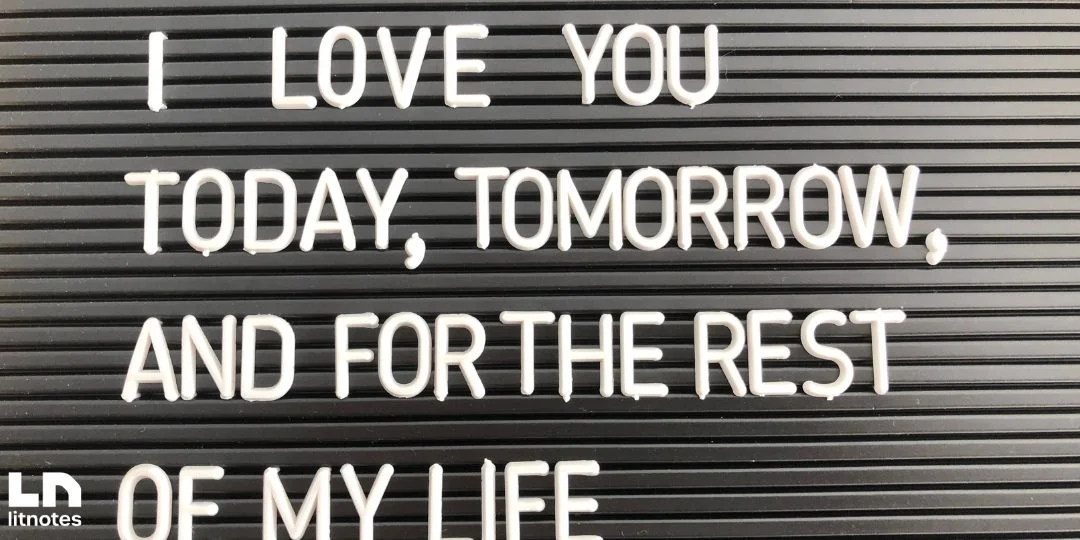 I LOVE YOU
TODAY, TOMORROW,
AND FOR THE REST
OF MY LIFE
LN
litnotes